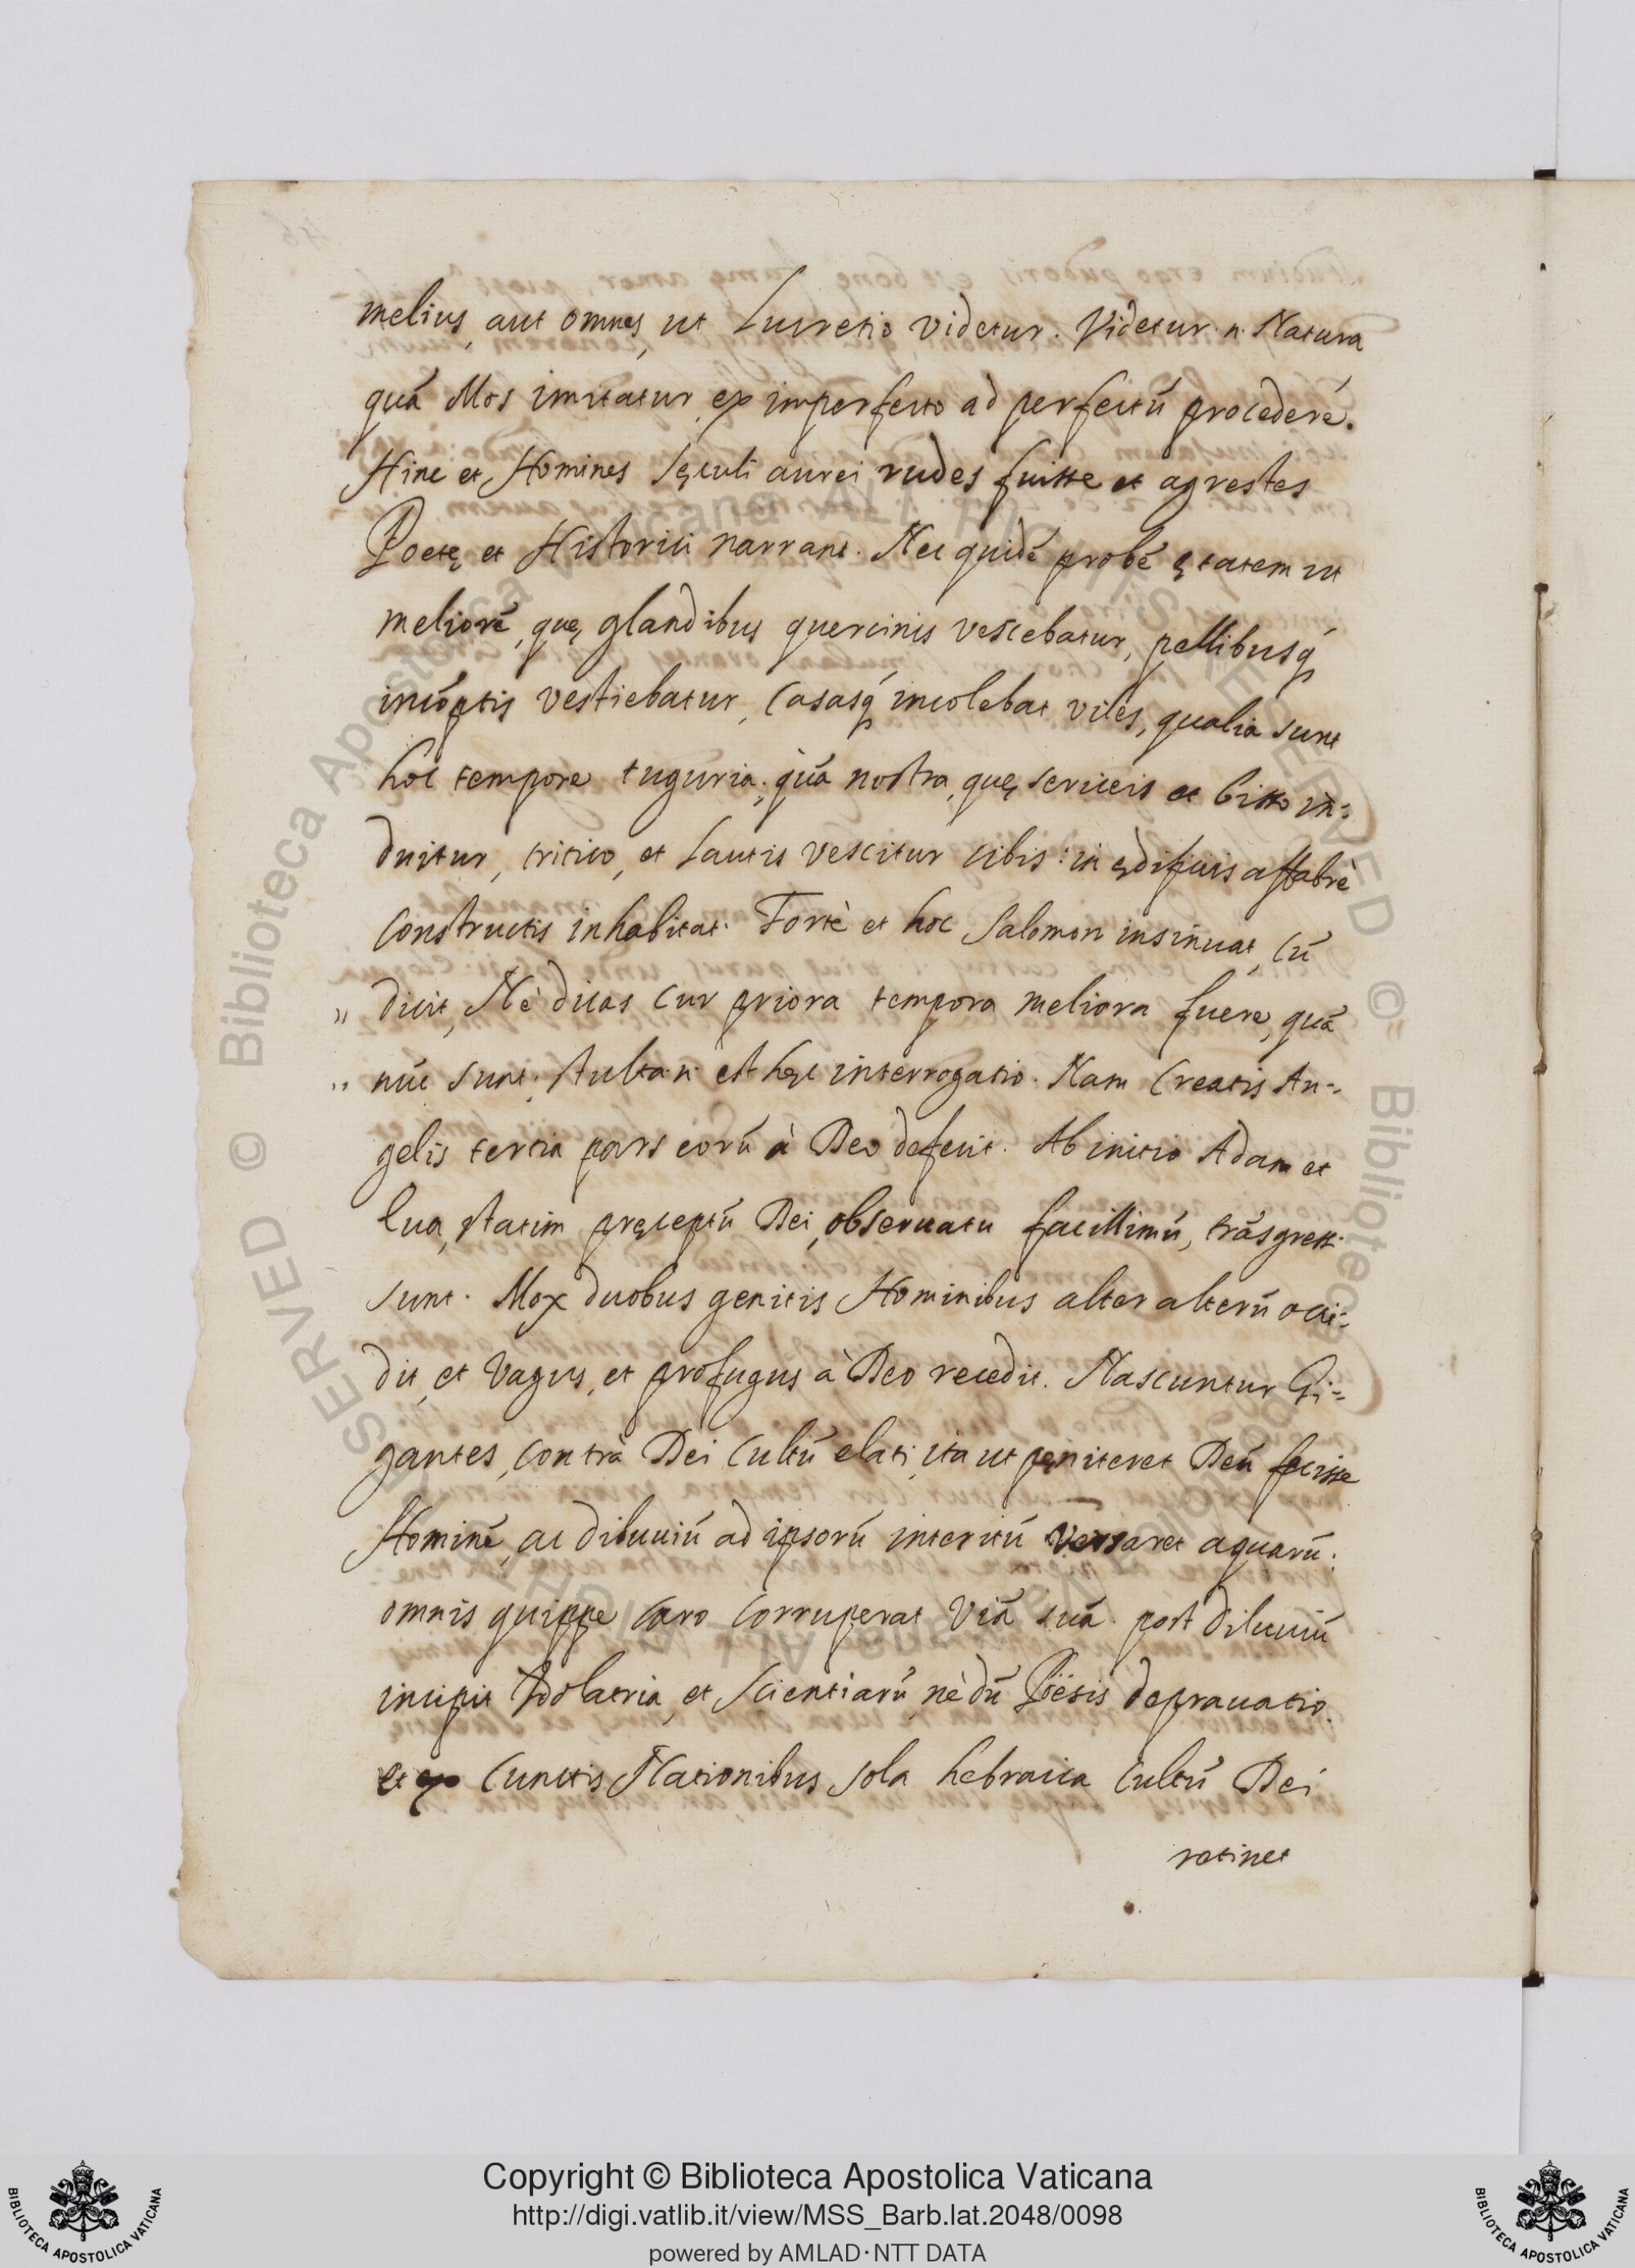 melius, aut omnes, ut Lucretio videtur. Videtur .n. Natura
quā Mos imitatur ex imperfecto ad perfectū procedere.
Hinc et Homines sęculi aurei rudes fuisse et agrestes
Poetę et Historici narrant. Nec quidē probē ętatem ut
meliorē, quę glandibus quercinis vescebatur, pellibusq́
incōptis vestiebatur, Casasq́ incolebat viles, qualia sunt
hoc tempore tuguria; quā nostra, quę sericeis et bisso in-
duitur, tritico, et Lautis vescitur cibis: in ędificiis affabrè
Constructis inhabitat. Fortè et hoc Salomon insinuat, Cū
" dicit, Nè dicas Cur priora tempora meliora fuere, quā
" nūc sunt; stulta .n. est hęc interrogatio. Nam Creatis An-
gelis tertia pars eorū à Deo defecit. Ab initio Adam et
Eua, statim pręceptū Dei, obseruatu facillimū, trāsgressi
sunt. Mox duobus genitis Hominibus alter alterū occi-
dit, et Vagus, et profugus à Deo recedit. Nascuntur Gi-
gantes, Contrà Dei Cultū elati, ita ut pęniteret Deū fecisse
Hominē, ac diluuiū ad ipsorū interitū versaret aquarū.
omnis quippe Caro Corruperat Viā suā. post Diluuiū
incipit Idolatria, et Scientiarū, nèdū Poësis deprauatio.
et ex Cunctis Nationibus sola hebraica Cultū Dei
retinet
Copyright © Biblioteca Apostolica Vaticana
http://digi.vatlib.it/view/MSS_Barb.lat.2048/0098
powered by AMLAD·NTT DATA
BIBLIOTECA APOSTOLICA VATICANA
BIBLIOTECA APOSTOLICA VATICANA